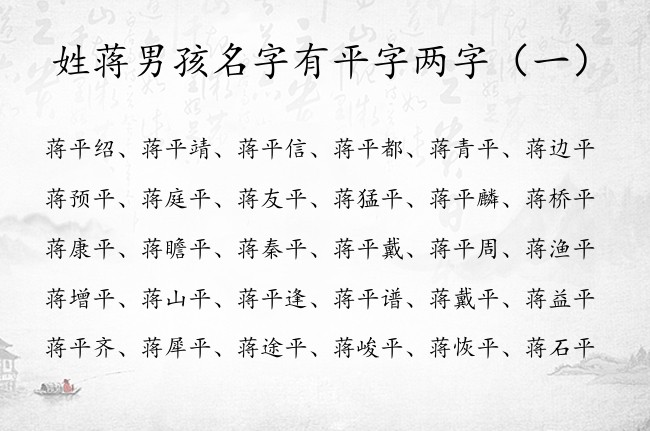 姓蒋男孩名字有平字两字（一）
蒋平绍、蒋平靖、蒋平信、蒋平都、蒋青平、蒋边平
蒋预平、蒋庭平、蒋友平、蒋猛平、蒋平麟、蒋桥平
蒋康平、蒋瞻平、蒋秦平、蒋平戴、蒋平周、蒋渔平
蒋增平、蒋山平、蒋平逢、蒋平谱、蒋戴平、蒋益平
蒋平齐、蒋犀平、蒋途平、蒋峻平、蒋恢平、蒋石平